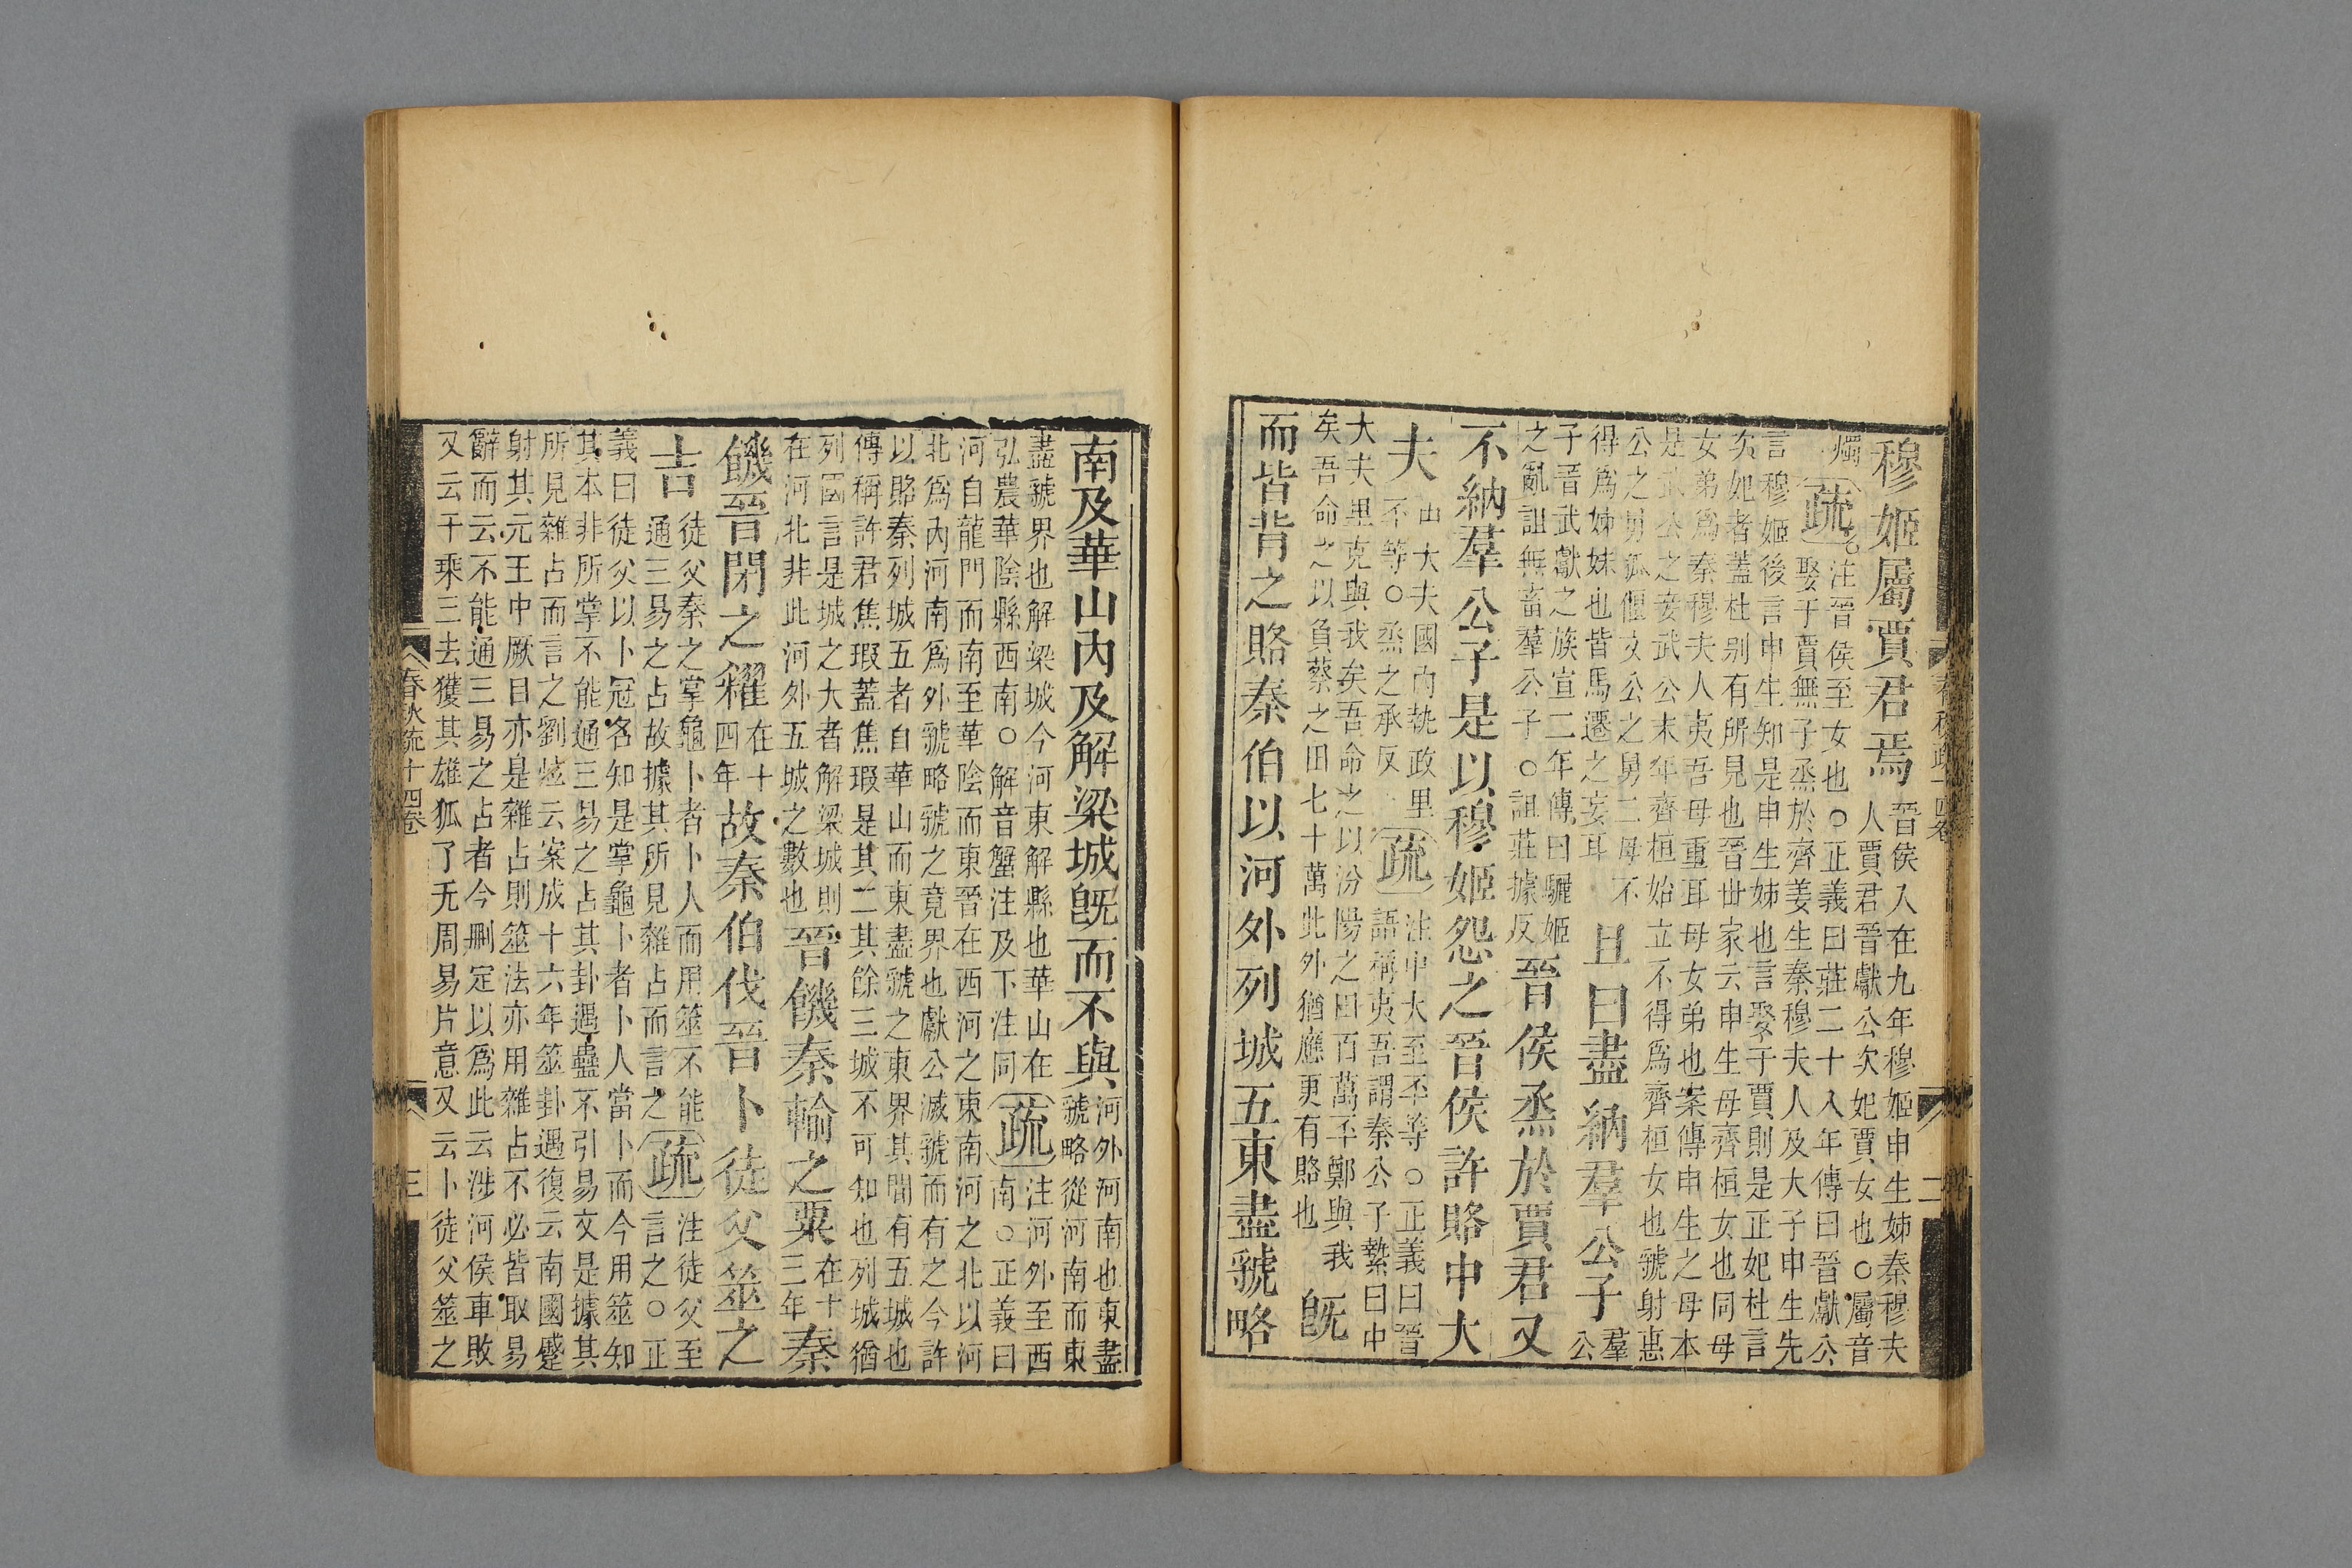 穆姬屬賈君焉
晉侯入在九年穆姬申生姊秦穆夫
人賈君晉獻公次妃賈女也○屬音
燭
疏
注晉侯至女也○正義曰莊二十八年傳曰晉獻公
娶于賈無子烝於齊姜生秦穆夫人及大子申生先
言穆姬後言申生知是申生姊也言娶于賈則是正妃杜言
次妃者蓋杜别有所見也晉世家云申生母齊桓女也同母
女弟爲秦穆夫人夷吾母重耳母女弟也案傳申生之母本
是武公之妾武公末年齊桓始立不得爲齊桓女也虢射惠
公之舅狐偃文公之舅二母不
得爲姊妹也皆馬遷之妄耳
且曰盡納羣公子
羣
公
子晉武獻之族宣二年傳曰驪姬
之亂詛無畜羣公子○詛莊據反
晉侯烝於賈君又
不納羣公子是以穆姬怨之晉侯許賂中大
夫
中大夫國內執政里
丕等○烝之承反
疏
注中大至丕等○正義曰晉
語稱夷吾謂秦公子縶曰中
大夫里克與我矣吾命之以汾陽之田百萬丕鄭與我
矣吾命之以負蔡之田七十萬此外猶應更有賂也
旣
而皆背之賂秦伯以河外列城五東盡虢略
南及華山內及解梁城旣而不與
河外河南也東盡
虢略從河南而東
盡虢界也解梁城今河東解縣也華山在
弘農華陰縣西南○解音蟹注及下注同
疏
注河外至西
南○正義曰
河自龍門而南至華陰而東晉在西河之東南河之北以河
北爲內河南爲外虢略虢之竟界也獻公滅虢而有之今許
以賂秦列城五者自華山而東盡虢之東界其間有五城也
傳稱許君焦瑕蓋焦瑕是其二其餘三城不可知也列城猶
列國言是城之大者解梁城則
在河北非此河外五城之數也
晉饑秦輸之粟
在十
三年
秦
饑晉閉之糴
在十
四年
故秦伯伐晉卜徒父筮之
吉
徒父秦之掌龜卜者卜人而用筮不能
通三易之占故據其所見雜占而言之
疏
注徒父至
言之○正
義曰徒父以卜冠名知是掌龜卜者卜人當卜而今用筮知
其本非所掌不能通三易之占其卦遇蠱不引易文是據其
所見雜占而言之劉炫云案成十六年筮卦遇復云南國蹙
射其元王中厥目亦是雜占則筮法亦用雜占不必皆取易
辭而云不能通三易之占者今删定以爲此云涉河侯車敗
又云千乘三去獲其雄狐了无周易片意又云卜徒父筮之
春秋疏十四卷
三